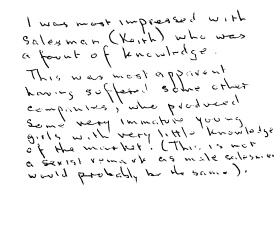 I was most impressed with
salesman (Keith) who was
a fount of knowledge.
This was most apparent
having suffered some other
companies, who produced
some very immature young
girls with very little knowledge
of the market. (This is not
a sexist remark as male salesmen
would probably be the same).